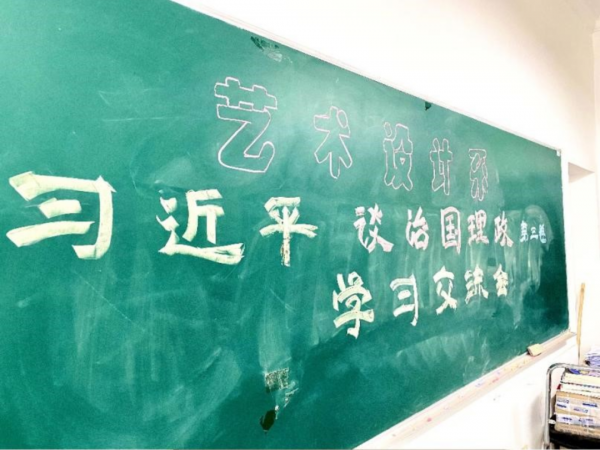 艺术设计系
习近平谈治国理政 第三卷
学习交流会